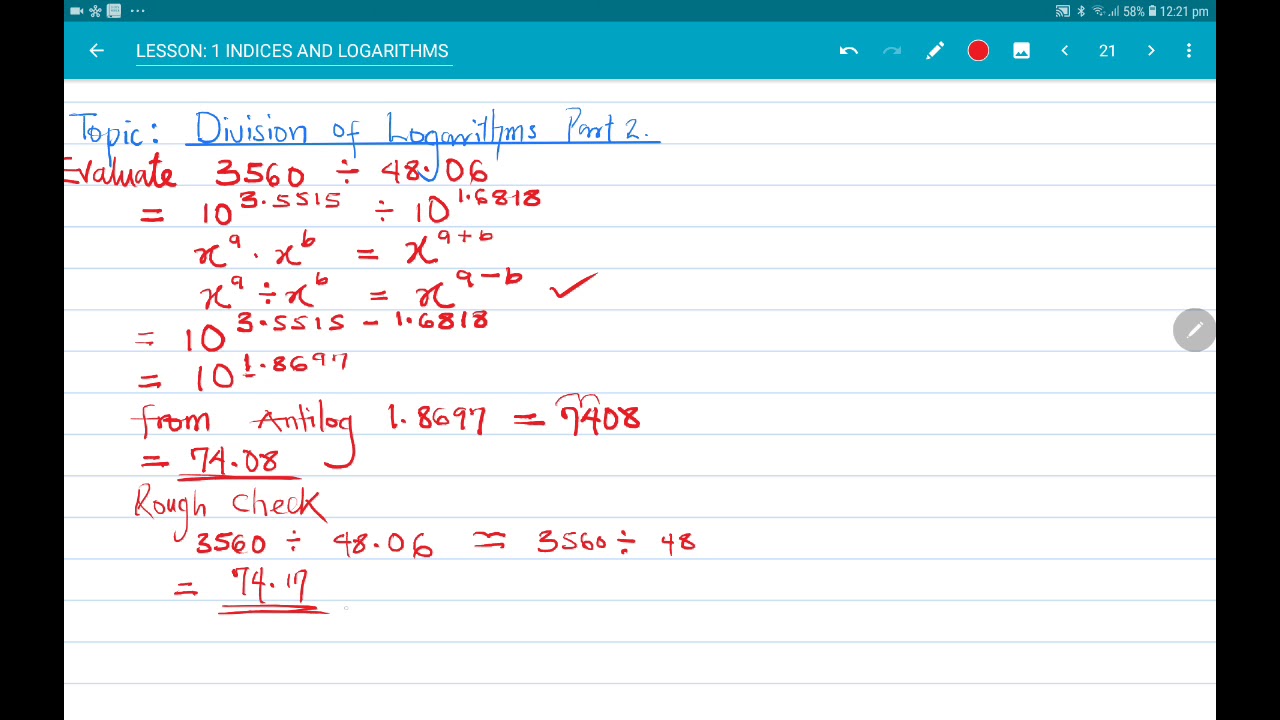 58% 12:21 pm
LESSON: 1 INDICES AND LOGARITHMS
21
Topic: Division of Logarithms Part 2.
Evaluate 3560 ÷ 48.06
= 10^3.5515 ÷ 10^1.6818
x^a · x^b = x^a+b
x^a ÷ x^b = x^a-b ✓
= 10^3.5515 - 1.6818
= 10^1.8697
from Antilog 1.8697 = 7408
= 74.08
Rough Check
3560 ÷ 48.06 ≈ 3560 ÷ 48
= 74.17